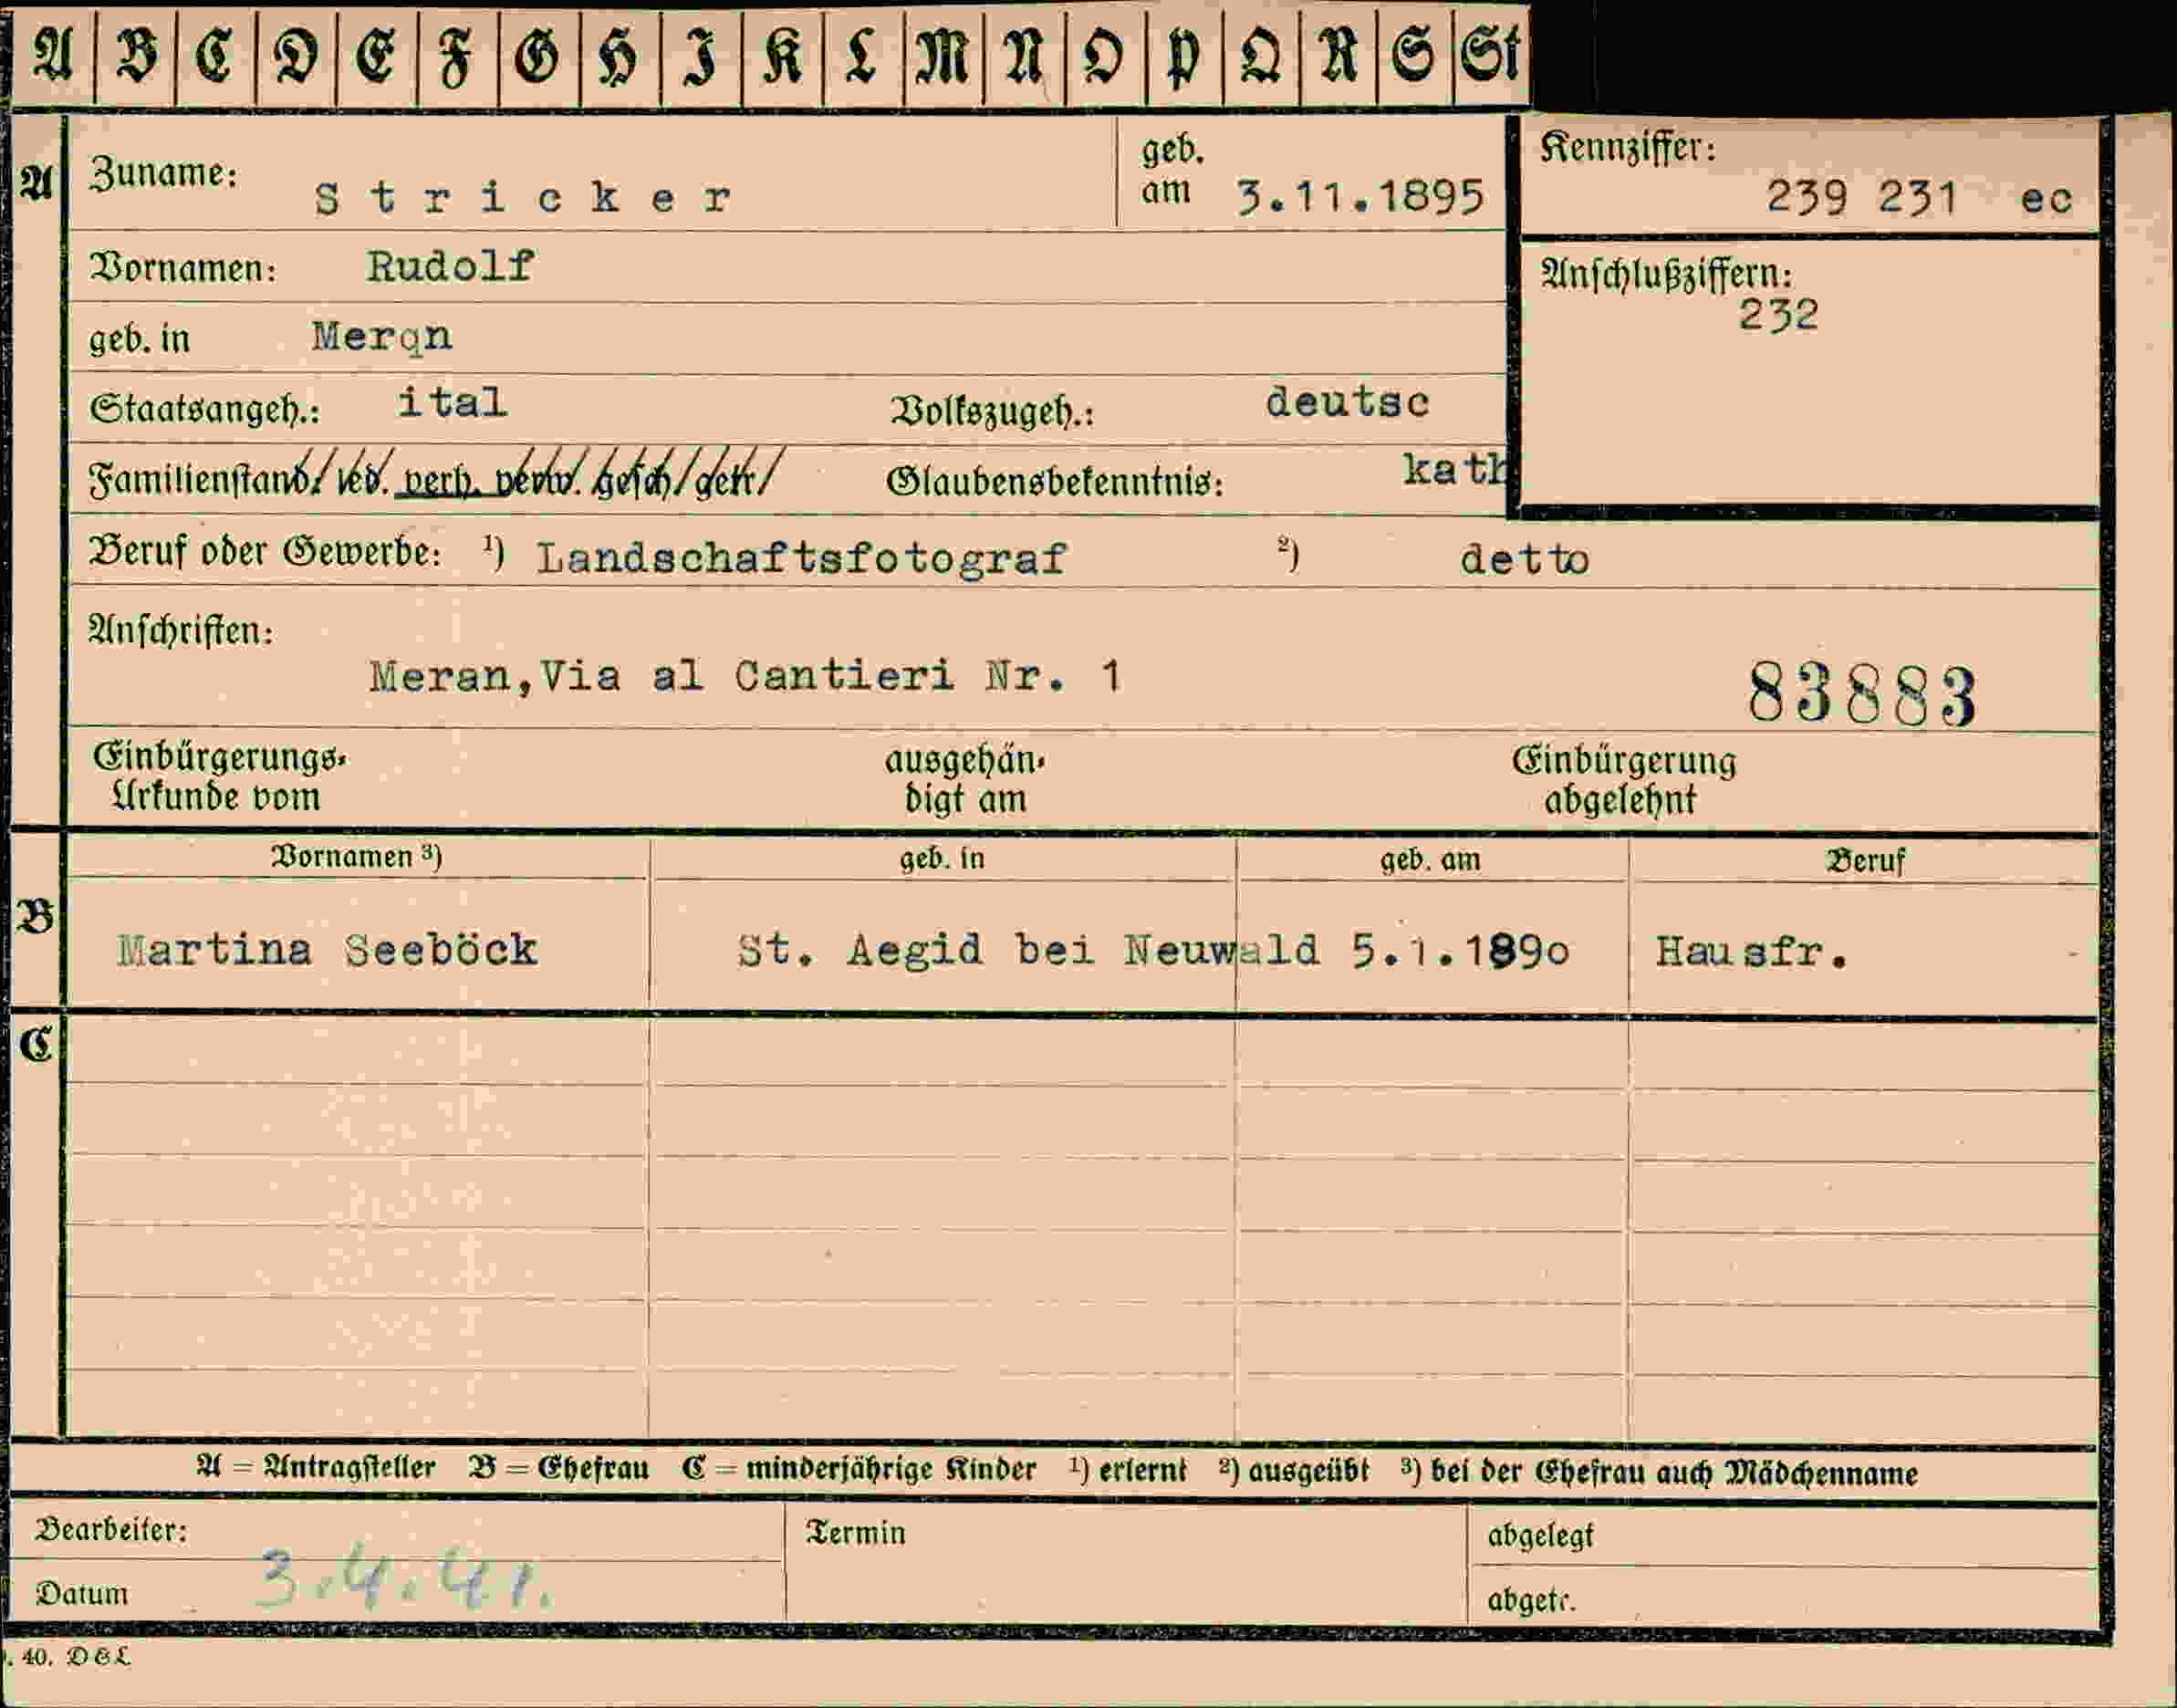 A B C D E F G H I K L M N O P Q R S St
A Zuname: S t r i c k e r geb. am 3.11.1895
Kennziffer: 239 231 ec
Vornamen: Rudolf
Anschlußziffern:
232
geb. in Meran
Staatsangeh.: ital Volkszugeh.: deutsc
Familienstand: led. verh. verw. gesch. getr. Glaubensbekenntnis: kath
Beruf oder Gewerbe: ¹) Landschaftsfotograf ²) detto
Anschriften:
Meran,Via al Cantieri Nr. 1 83883
Einbürgerungs-
Urkunde vom
ausgehän-
digt am
Einbürgerung
abgelehnt
Vornamen ³) geb. in geb. am Beruf
B Martina Seeböck St. Aegid bei Neuwald 5.1.1890 Hausfr.
C
A = Antragsteller B = Ehefrau C = minderjährige Kinder ¹) erlernt ²) ausgeübt ³) bei der Ehefrau auch Mädchenname
Bearbeiter: Termin abgelegt
Datum 3.4.41. abgetr.
. 40. D&L